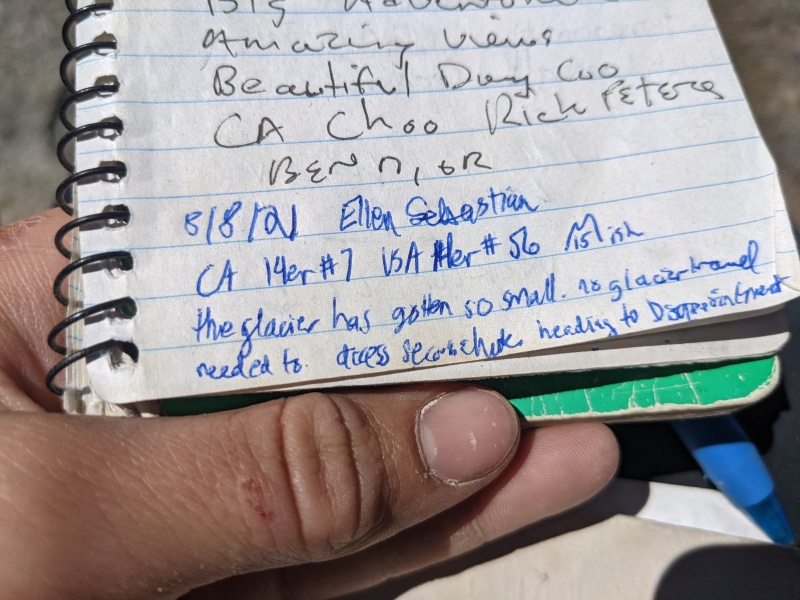 Big Adventure
Amazing Views
Beautiful Day Coo
CA Choo Rich PETERS
BEN N, OR
8/8/21 Ellen Sebastian
CA 14er #7 USA 14er # 56 ish
the glacier has gotten so small. no glacier travel
needed to access secor chute heading to Disappointment